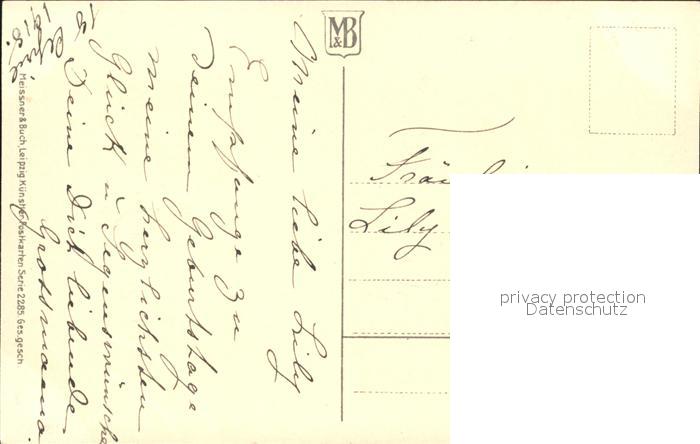 Meine liebe Lily
Empfange zu
Deinem Geburtstage
meine herzlichsten
Glück u. Segenswünsche
Deine Dich liebende
Grossmama.
M&B
Fräulein
Lily
privacy protection
Datenschutz
Meissner & Buch, Leipzig Künstler-Postkarten Serie 2285 Ges. gesch